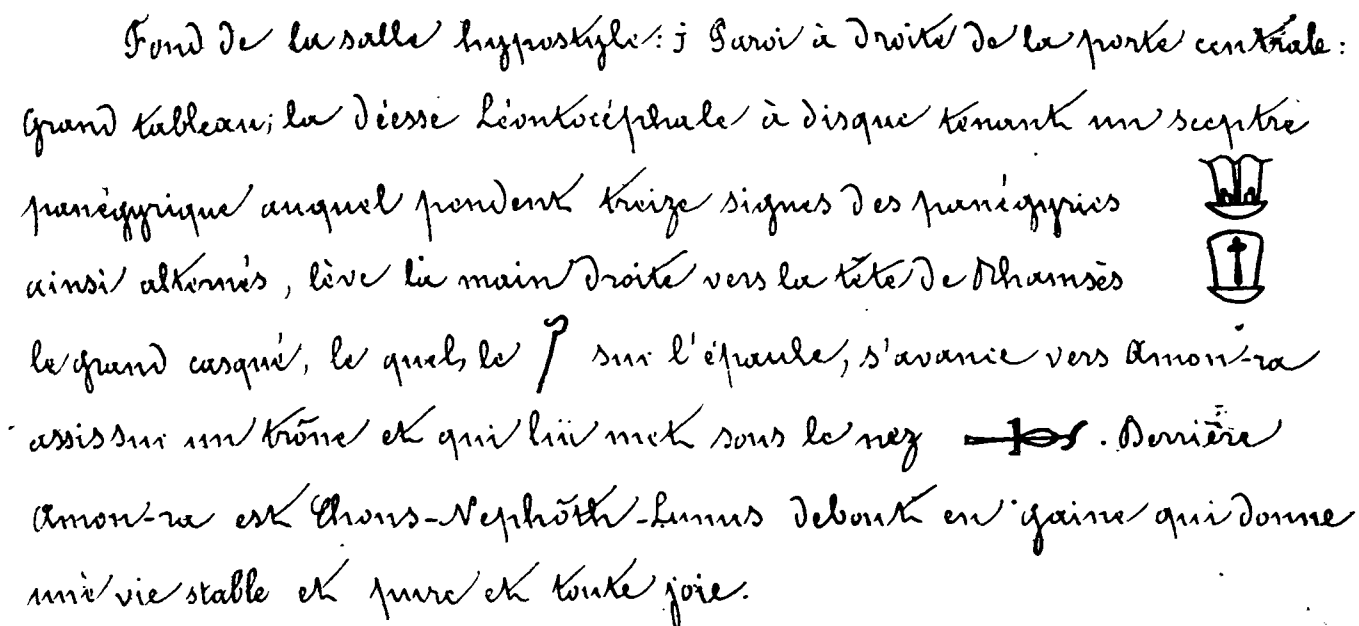 Fond de la salle hypostyle: j Paroi à droite de la porte centrale:
Grand tableau; la déesse Léontocéphale à disque tenant un sceptre
panégyrique auquel pendent treize signes des panégyries
ainsi alternés, lève la main droite vers la tête de Rhamsès
le grand casqué, le quel, le sur l'épaule, s'avance vers Amon-ra
assis sur un trône et qui lui met sous le nez . Derrière
Amon-ra est Chons-Nephôth-Lunus debout en gaine qui donne
une vie stable et pure et toute joie.